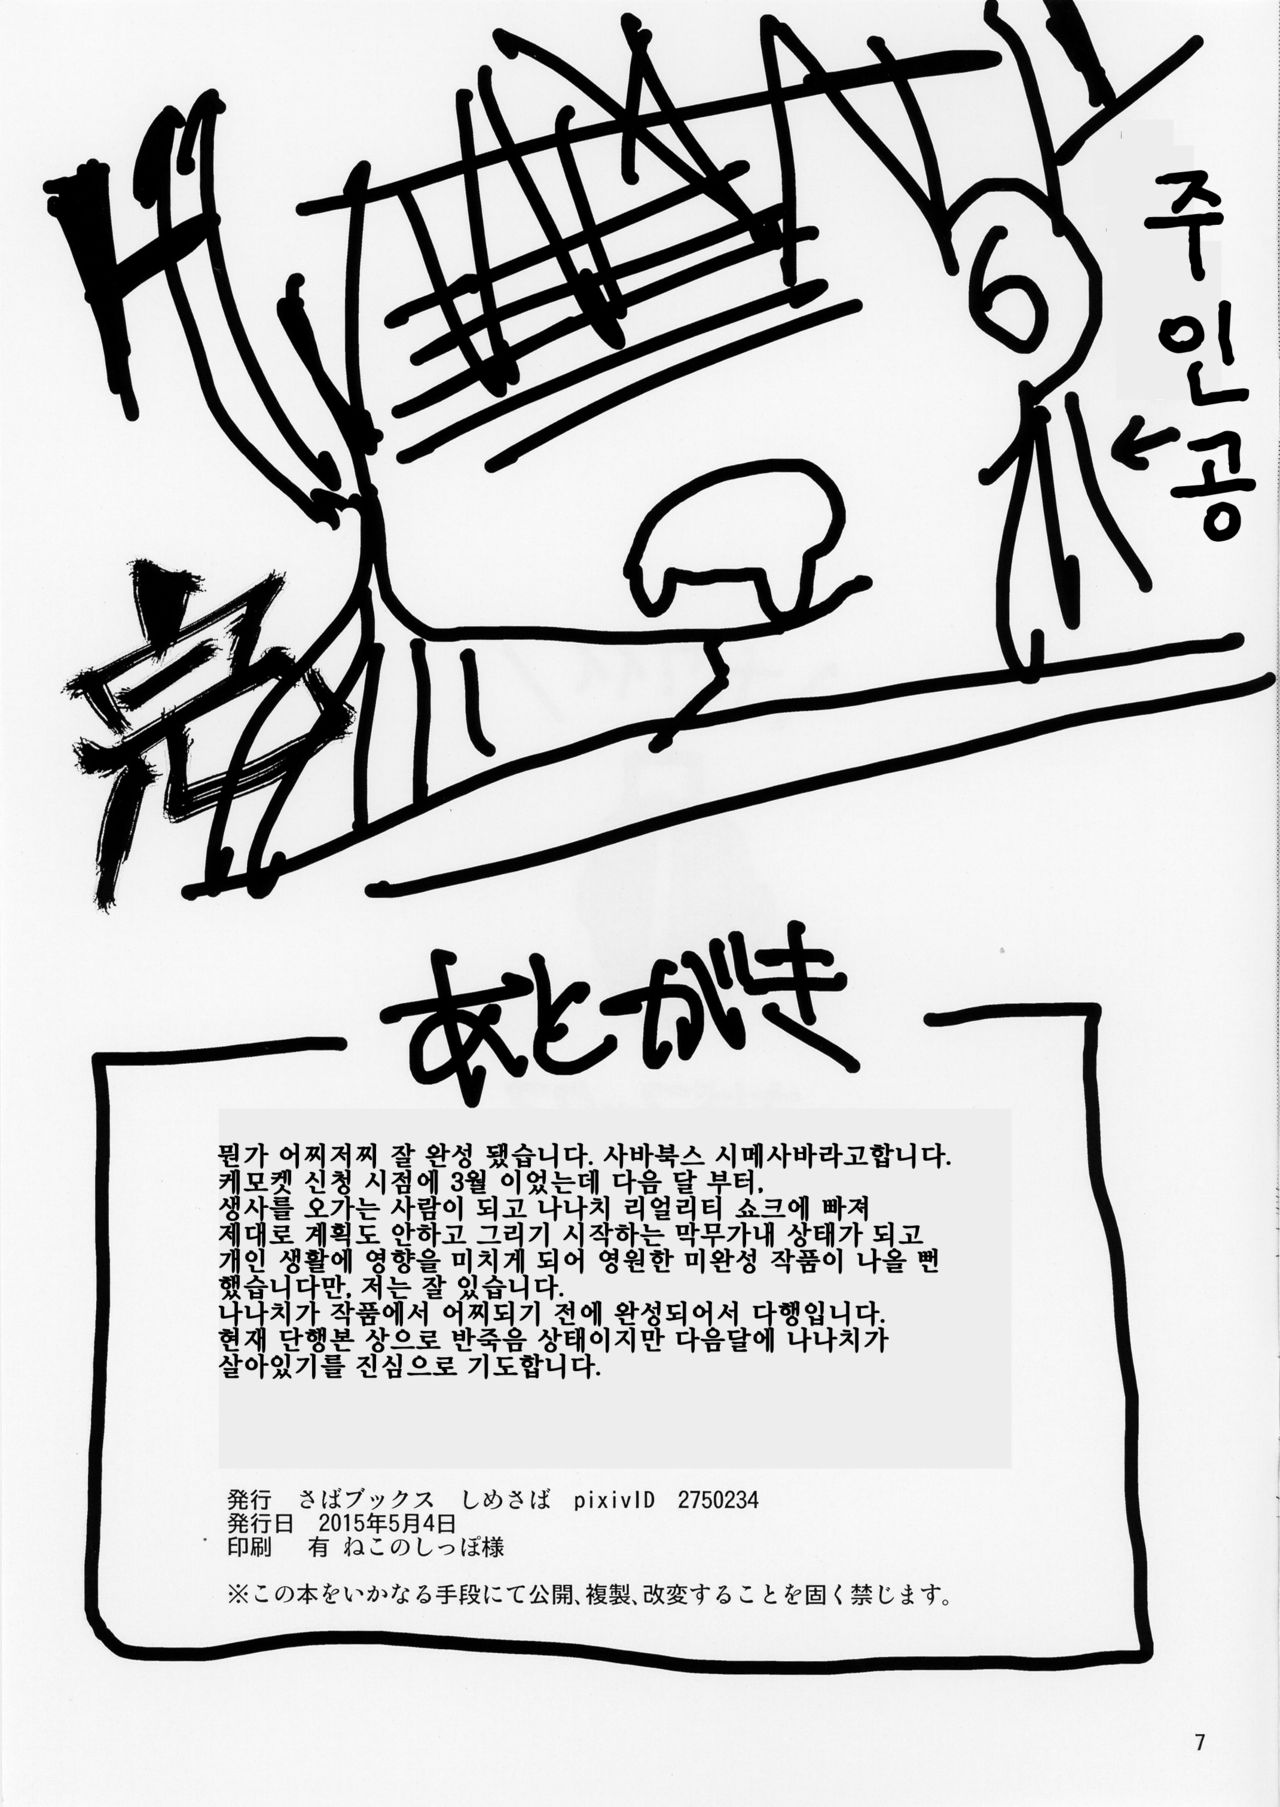 주인공
完
あとがき
뭔가 어찌저찌 잘 완성 됐습니다. 사바북스 시메사바라고합니다.
케모켓 신청 시점에 3월 이었는데 다음 달 부터,
생사를 오가는 사람이 되고 나나치 리얼리티 쇼크에 빠져
제대로 계획도 안하고 그리기 시작하는 막무가내 상태가 되고
개인 생활에 영향을 미치게 되어 영원한 미완성 작품이 나올 뻔
했습니다만, 저는 잘 있습니다.
나나치가 작품에서 어찌되기 전에 완성되어서 다행입니다.
현재 단행본 상으로 반죽음 상태이지만 다음달에 나나치가
살아있기를 진심으로 기도합니다.
発行　さばブックス　しめさば　pixivID　2750234
発行日　2015年5月4日
印刷　有 ねこのしっぽ様
※この本をいかなる手段にて公開、複製、改変することを固く禁じます。
7